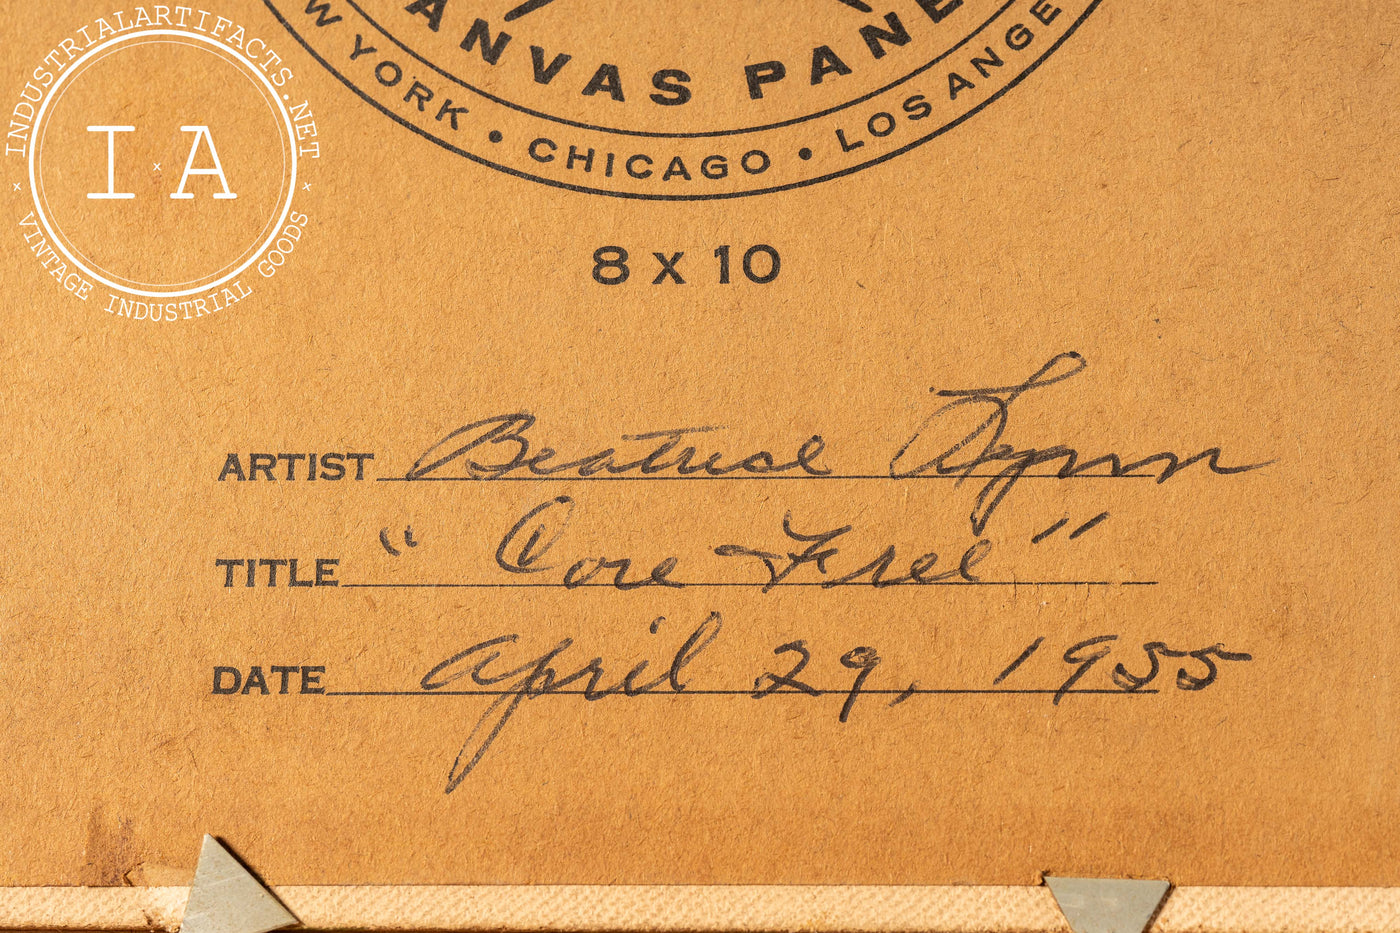 INDUSTRIALARTIFACTS.NET
I·A
VINTAGE INDUSTRIAL GOODS
ANVAS PANE
W YORK • CHICAGO • LOS ANGE
8 X 10
ARTIST Beatrice Lynn
TITLE "Core Free"
DATE April 29, 1955